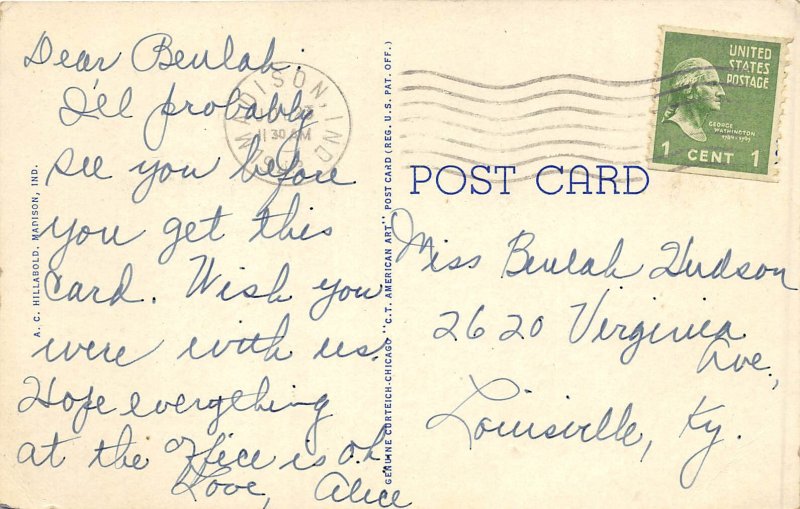 Dear Beulah.
I'll probably
see you before
you get this
card. Wish you
were with us.
Hope everything
at the office is o.k.
Love, Alice
MADISON, IND.
11 30 AM
UNITED
STATES
POSTAGE
GEORGE
WASHINGTON
1789-1797
1 CENT 1
POST CARD
Miss Beulah Hudson
2620 Virginia
Ave.,
Louisville, Ky.
A. C. HILLABOLD, MADISON, IND.
GENUINE CURTEICH-CHICAGO "C.T. AMERICAN ART" POST CARD (REG. U.S. PAT. OFF.)